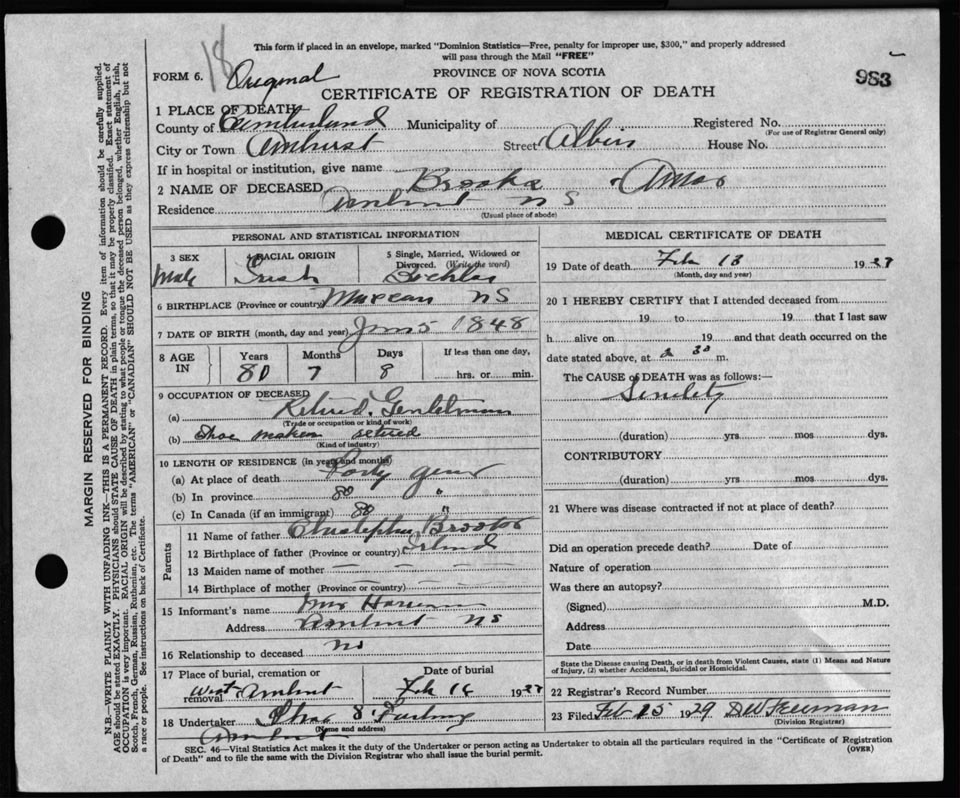 18
This form if placed in an envelope, marked "Dominion Statistics—Free, penalty for improper use, $300," and properly addressed
will pass through the Mail "FREE"
FORM 6. Original
PROVINCE OF NOVA SCOTIA
983
CERTIFICATE OF REGISTRATION OF DEATH
1 PLACE OF DEATH—
County of Cumberland Municipality of Registered No.
(For use of Registrar General only)
City or Town Amherst Street Albion House No.
If in hospital or institution, give name
2 NAME OF DECEASED Brooks Amos
Residence Amherst N S
(Usual place of abode)
PERSONAL AND STATISTICAL INFORMATION
3 SEX 4 RACIAL ORIGIN 5 Single, Married, Widowed or
Divorced. (Write the word)
Male Irish
6 BIRTHPLACE (Province or country) N S
7 DATE OF BIRTH (month, day and year) 5 1848
8 AGE IN Years Months Days If less than one day,
80 7 8 hrs. or min.
9 OCCUPATION OF DECEASED
(a) Retired. Gentleman
(Trade or occupation or kind of work)
(b) Shoe maker retired
(Kind of industry)
10 LENGTH OF RESIDENCE (in years and months)
(a) At place of death Forty years
(b) In province 80 "
(c) In Canada (if an immigrant) 80 "
Parents
11 Name of father Christopher Brooks
12 Birthplace of father (Province or country) Ireland
13 Maiden name of mother — — — —
14 Birthplace of mother (Province or country) — — — —
15 Informant's name Mrs
Address Amherst N S
16 Relationship to deceased No
17 Place of burial, cremation or removal Date of burial
West Amherst Feb 16 19
18 Undertaker
(Name and address)
Amherst
MEDICAL CERTIFICATE OF DEATH
19 Date of death Feb 13 19
(Month, day and year)
20 I HEREBY CERTIFY that I attended deceased from
19 to 19 that I last saw
h alive on 19 and that death occurred on the
date stated above, at m.
The CAUSE of DEATH was as follows:—
Senility
(duration) yrs. mos dys.
CONTRIBUTORY
(duration) yrs. mos dys.
21 Where was disease contracted if not at place of death?
Did an operation precede death? Date of
Nature of operation
Was there an autopsy?
(Signed) M.D.
Address
Date
State the Disease causing Death, or in death from Violent Causes, state (1) Means and Nature
of Injury, (2) whether Accidental, Suicidal or Homicidal.
22 Registrar's Record Number
23 Filed Feb 15 1929 Freeman
(Division Registrar)
SEC. 46—Vital Statistics Act makes it the duty of the Undertaker or person acting as Undertaker to obtain all the particulars required in the "Certificate of Registration
of Death" and to file the same with the Division Registrar who shall issue the burial permit.
(OVER)
MARGIN RESERVED FOR BINDING
N.B.—WRITE PLAINLY WITH UNFADING INK—THIS IS A PERMANENT RECORD. Every item of information should be carefully supplied.
AGE should be stated EXACTLY. PHYSICIANS should STATE CAUSE OF DEATH in plain terms, so that it may be properly classified. Exact statement of
OCCUPATION is very important. RACIAL ORIGIN will be described by stating to what people or tongue the deceased person belonged, whether English, Irish,
Scotch, French, German, Russian, Ruthenian, etc. The terms "AMERICAN" or "CANADIAN" SHOULD NOT BE USED as they express citizenship but not
a race or people. See instructions on back of Certificate.